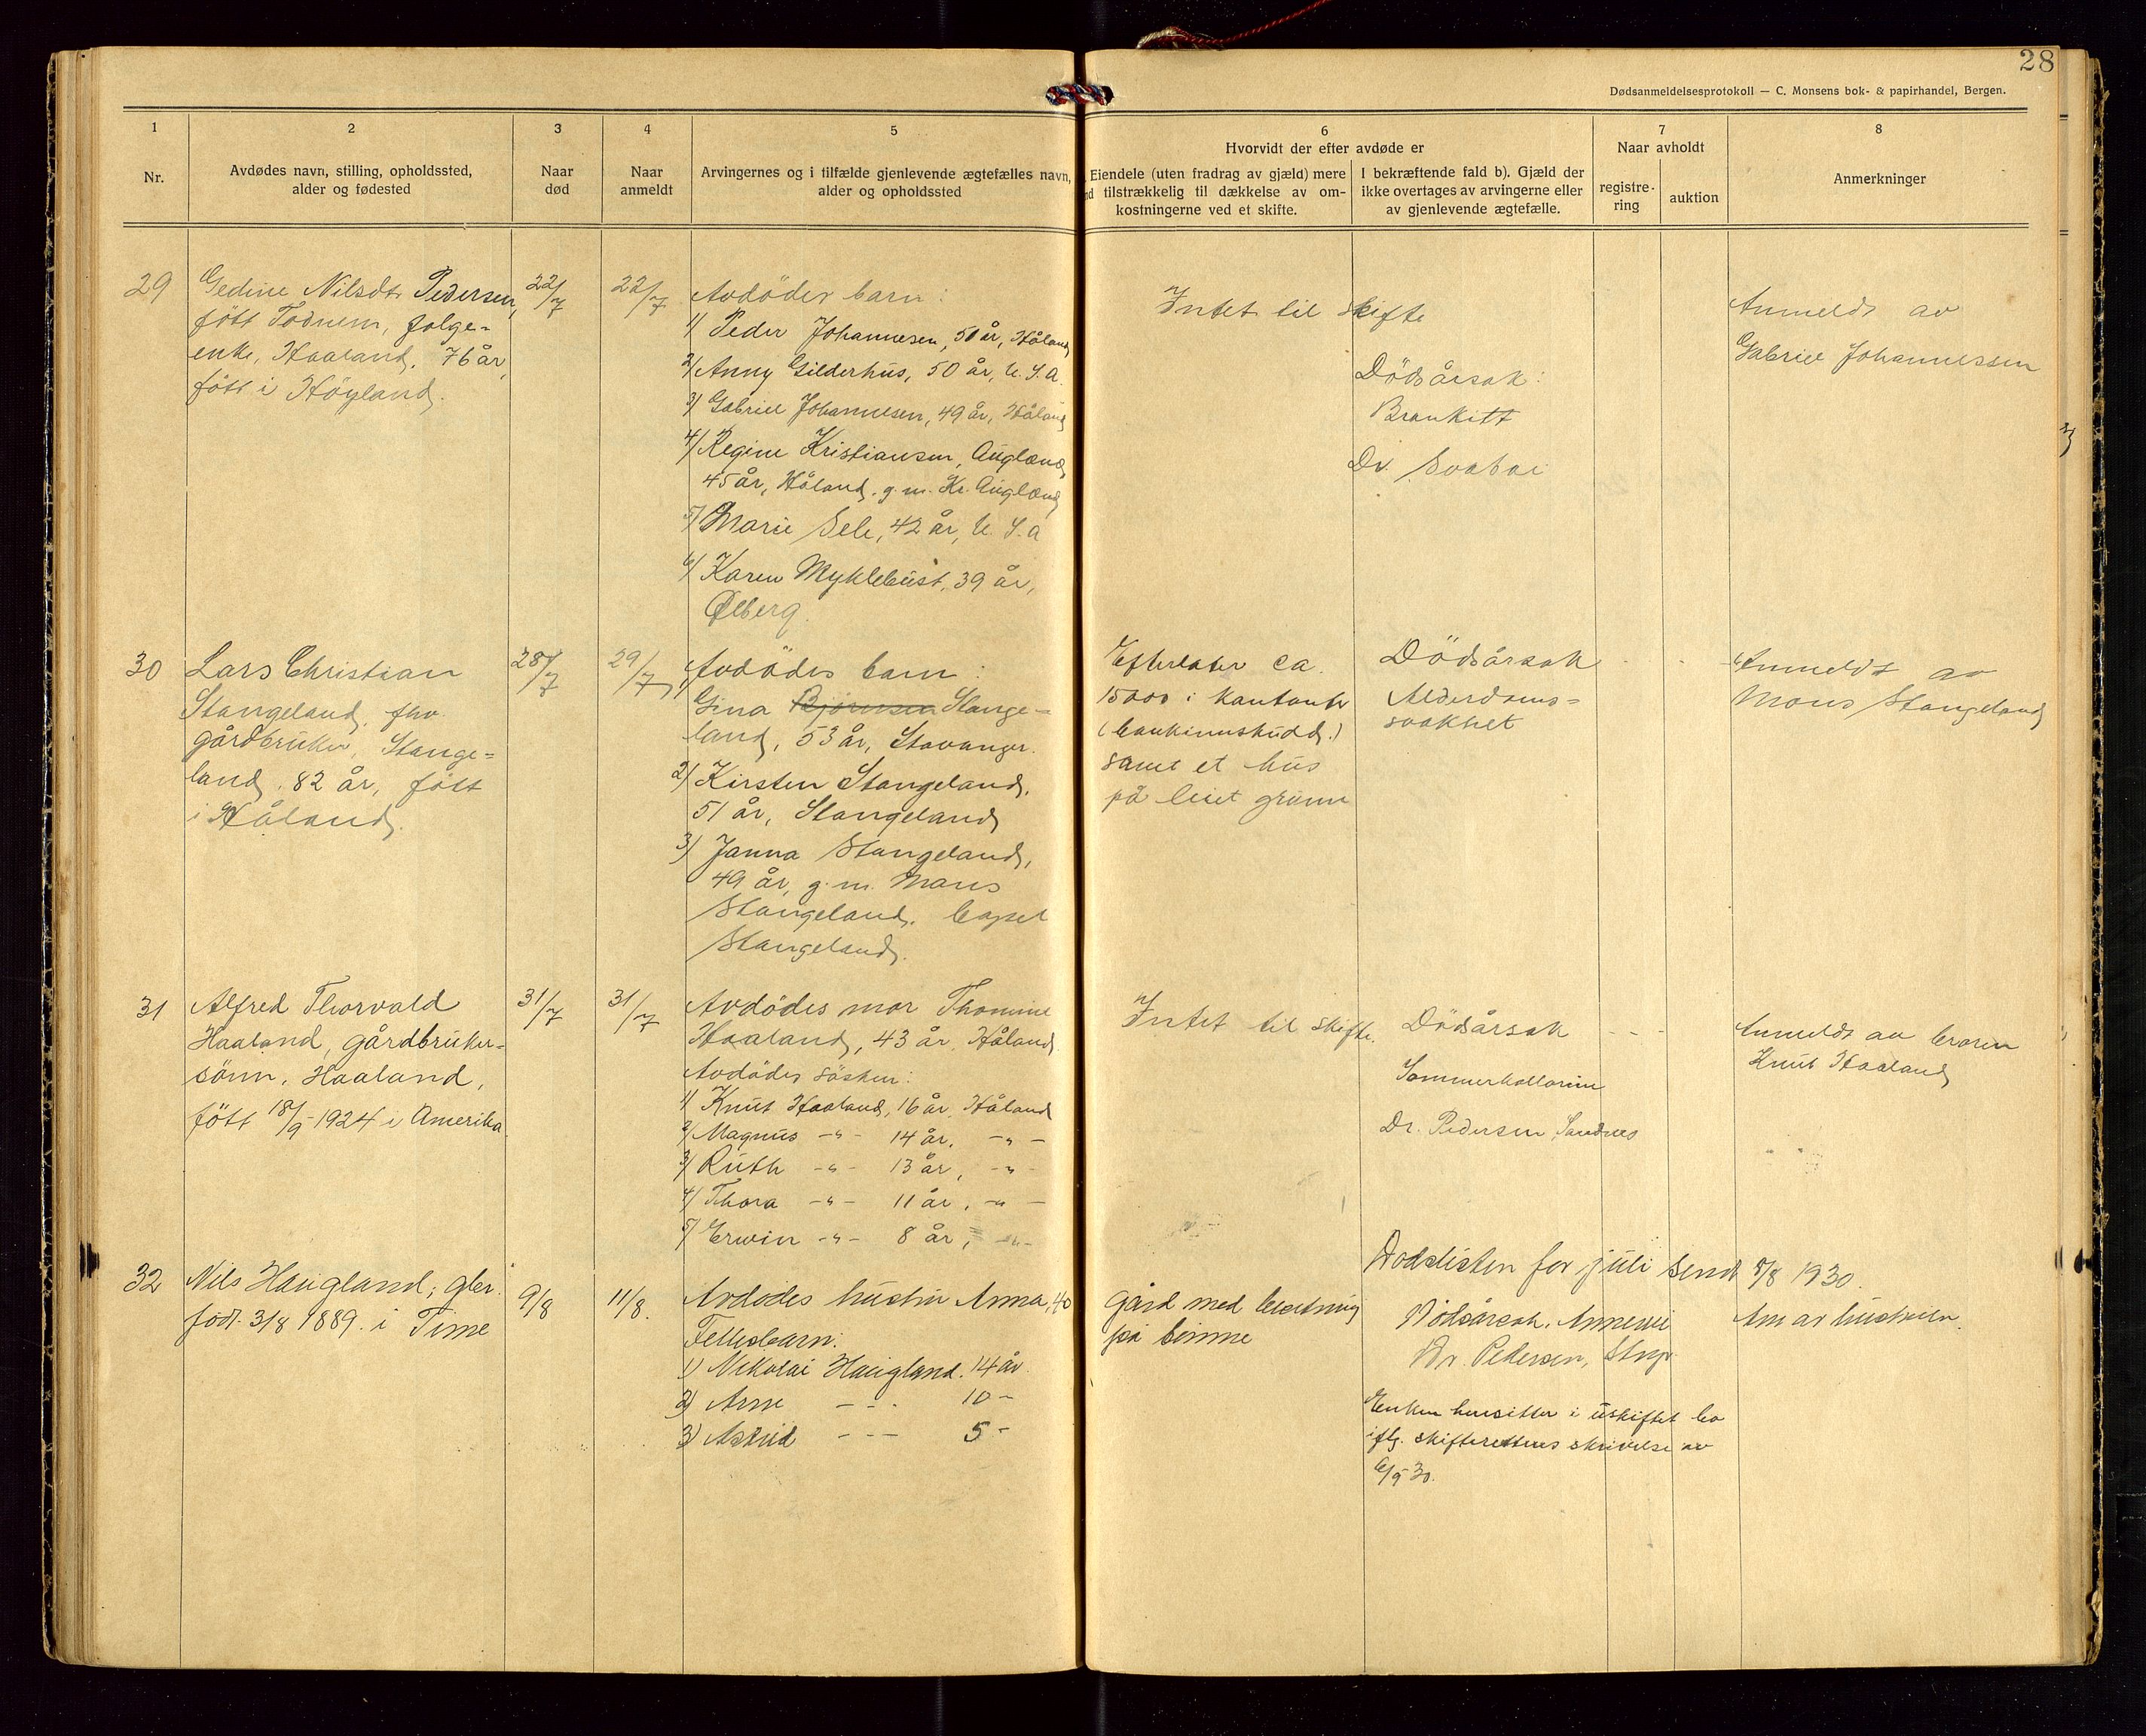 28
Dødsanmeldelsesprotokoll — C. Monsens bok- & papirhandel, Bergen.
1
2
3
4
5
6
7
8
Nr.
Avdødes navn, stilling, opholdssted,
alder og fødested
Naar
død
Naar
anmeldt
Arvingernes og i tilfælde gjenlevende ægtefælles navn,
alder og opholdssted
Hvorvidt der efter avdøde er
Eiendele (uten fradrag av gjæld) mere
nd tilstrækkelig til dækkelse av om-
kostningerne ved et skifte.
I bekræftende fald b). Gjæld der
ikke overtages av arvingerne eller
av gjenlevende ægtefælle.
Naar avholdt
registre-
ring
auktion
Anmerkninger
29
Gedine Nilsdtr Pedersen,
født Todnem, folge-
enke, Haaland, 76 år,
født i Höyland.
22/7
22/7
Avdödes barn:
1) Peder Johannesen, 50 år, Håland
2) Anny Gilderhus, 50 år, U.S.A.
3) Gabriel Johannesen, 49 år, Håland
4) Regine Kristiansen, Augland
45 år, Håland, g.m. Kr. Augland
5) Marie Sele, 42 år, U.S.A
6) Karen Myklebust, 39 år,
Ølberg.
Intet til skifte
Dödsårsak:
Bronkitt
Dr. Svaboe
Anmeldt av
Gabriel Johannessen
30
Lars Christian
Stangeland, fhv.
gårdbruker, Stange-
land, 82 år, fött
i Håland.
28/7
29/7
Avdödes barn:
1) Gina Björnsen Stange-
land, 53 år, Stavanger.
2) Kirsten Stangeland,
51 år, Stangeland
3) Janna Stangeland,
49 år, g.m. Mons
Stangeland, bopel
Stangeland.
Efterlater ca.
15000 i kontanter
(bankinnskudd.)
samt et hus
på leiet grunn
Dödsårsak
Alderdoms-
svakhet
Anmeldt av
Mons Stangeland
31
Alfred Thorvald
Haaland, gårdbruker-
sönn, Haaland,
fött 18/9-1924 i Amerika.
31/7
31/7
Avdödes mor Thomine
Haaland, 43 år, Håland.
Avdödes sösken:
1) Knut Haaland, 16 år, Håland
2) Magnus -"- 14 år, -"-
3) Ruth -"- 13 år, -"-
4) Thora -"- 11 år, -"-
5) Erwin -"- 8 år, -"-
Intet til skifte.
Dödsårsak
Sommerkollorine
Dr. Pedersen Sandnes
Anmeldt av broren
Knut Haaland
Dodslisten for juli sendt 8/8 1930.
32
Nils Haugland, gbr.
född 3/8 1889. i Time
9/8
11/8.
Avdödes hustru Anna, 40
Fellesbarn:
1) Nikolai Haugland. 14 år.
2) Arne - - - 10 -
3) Astrid - - - 5 -
Gård med besetning
på
Dödsårsak.
Dr. Pedersen,
Anm av hustruen.
Enken hensitter i uskiftet bo
iflg. skifterettens skrivelse av
6/9 30.